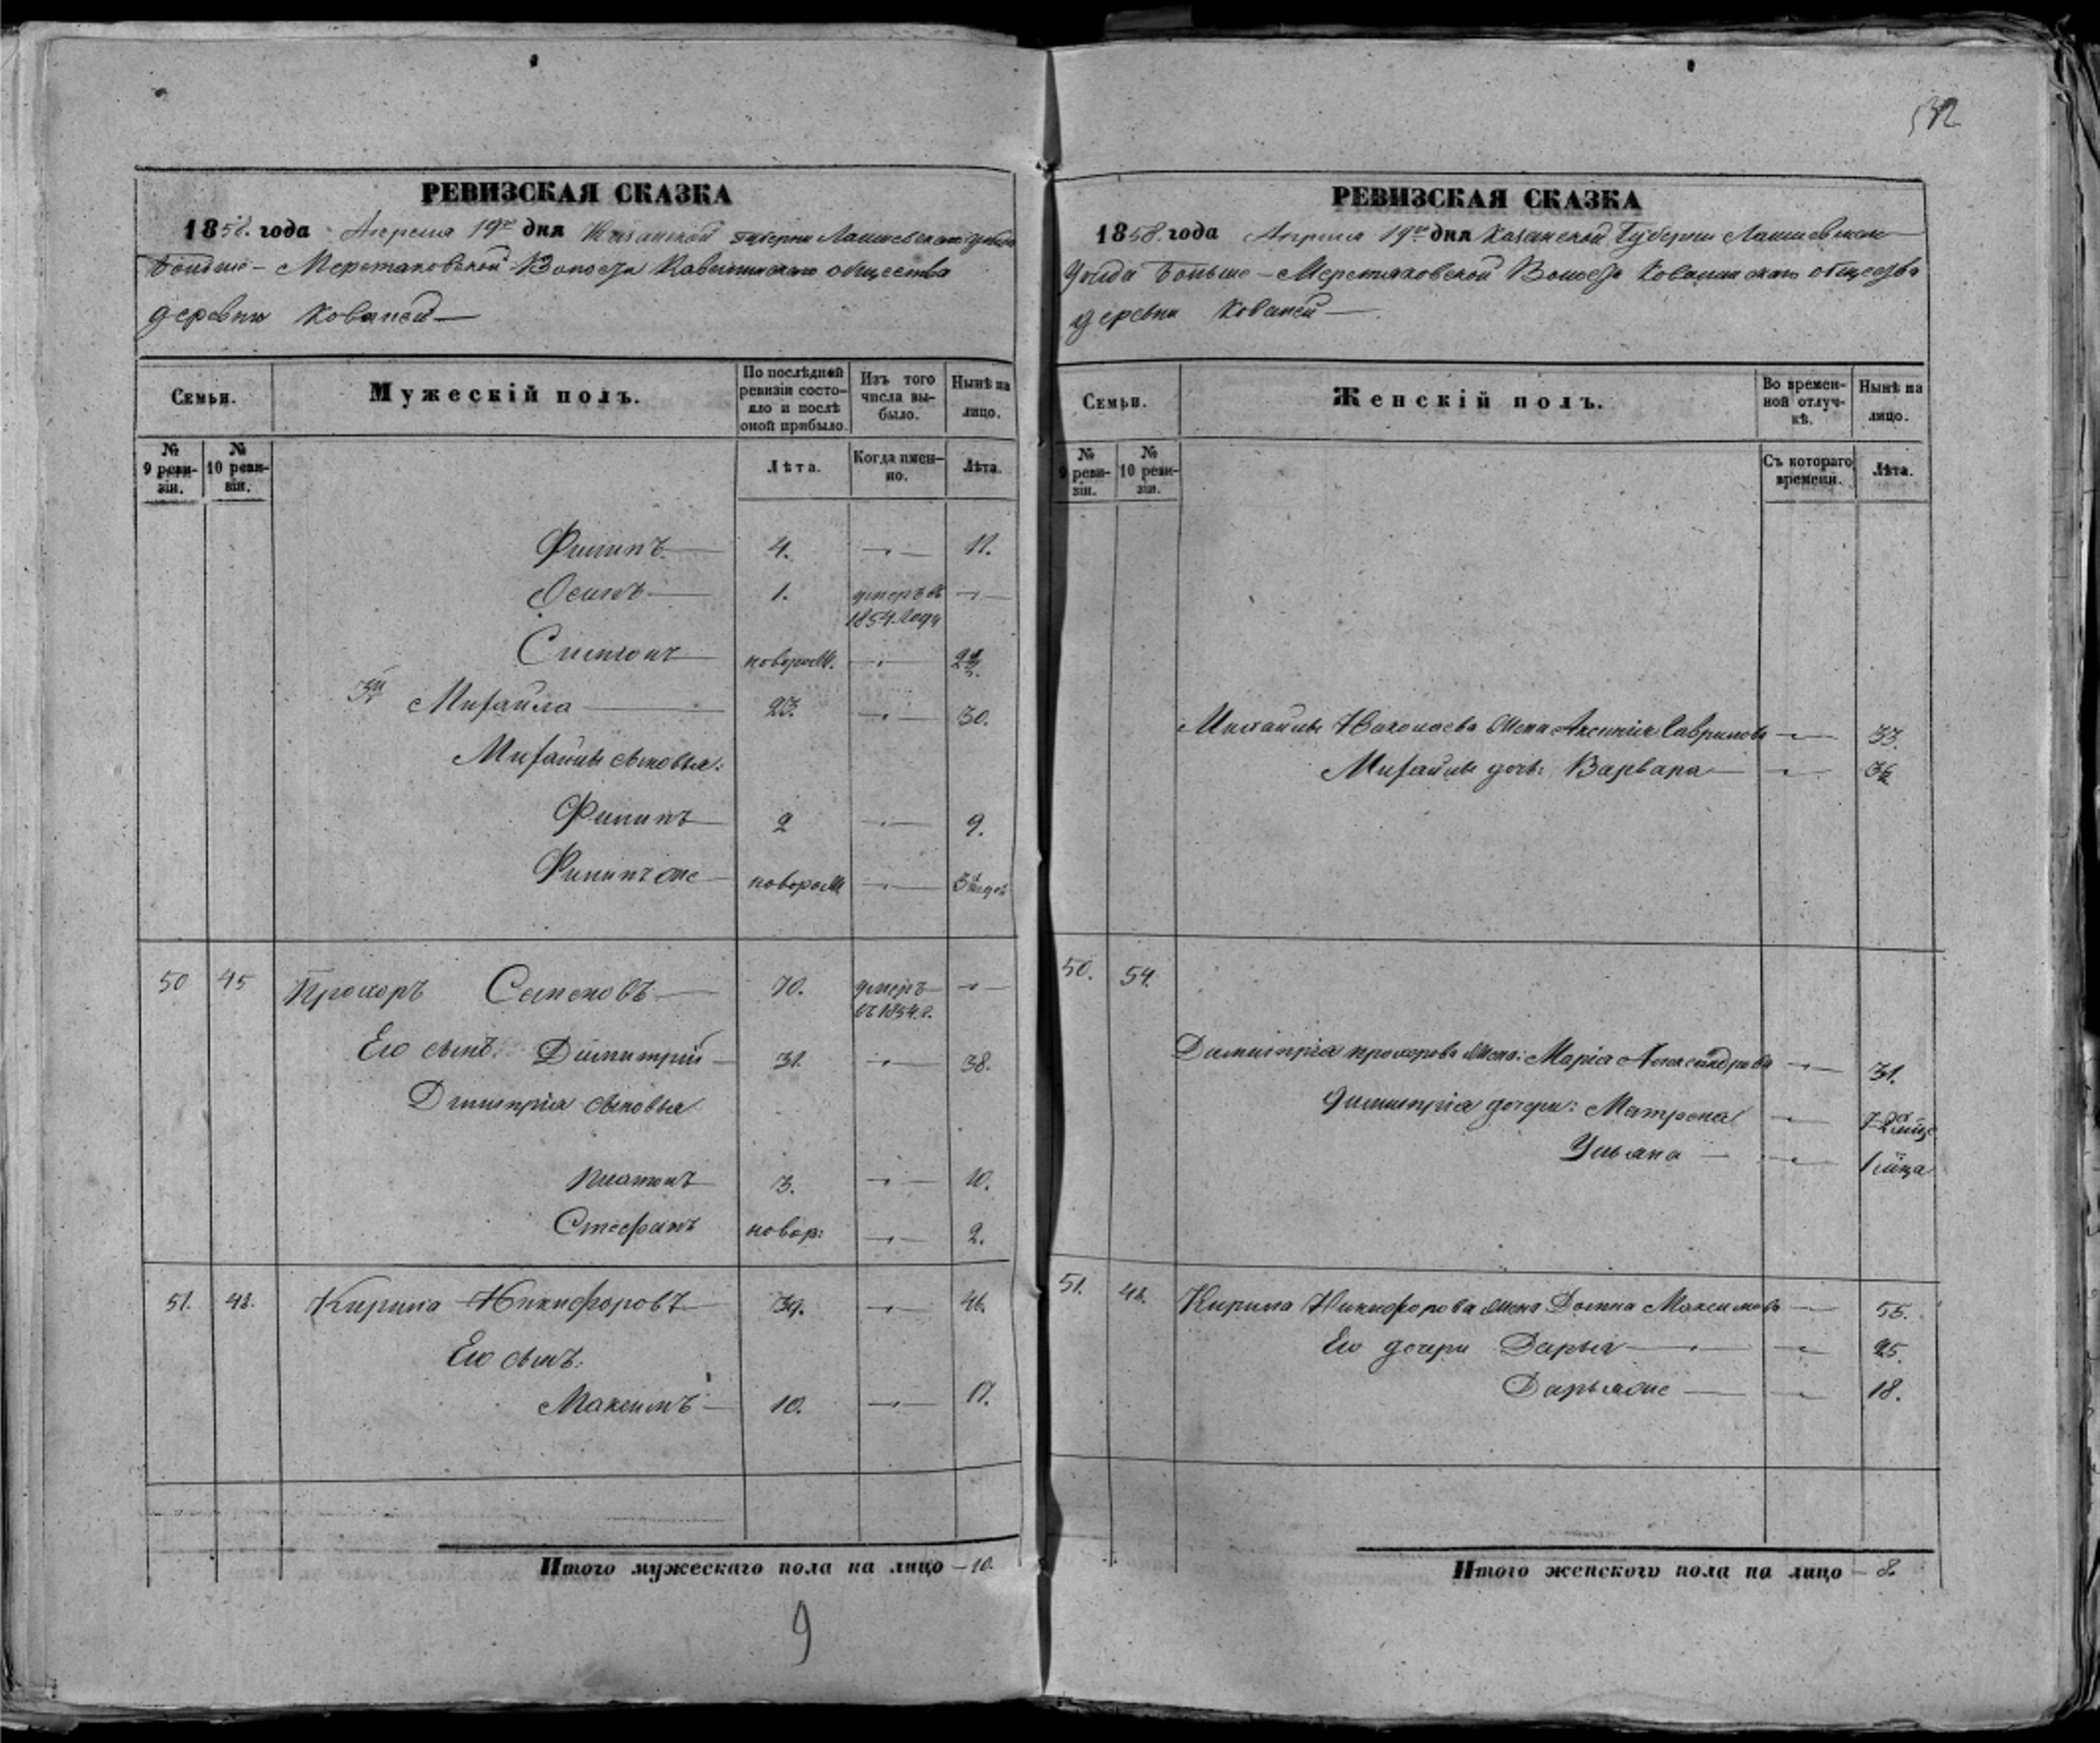 532
РЕВИЗСКАЯ СКАЗКА
1858. года Апреля 19го дня Казанской губерни Лаишевскаго уезда
Больше-Меретяковской Волости Ковалинскаго общества
деревни Ковалей
Семьи.
Мужескій полъ.
По послѣдней ревизіи состояло и послѣ оной прибыло.
Изъ того числа выбыло.
Нынѣ на лицо.
№ 9 ревизіи.
№ 10 ревизіи.
Лѣта.
Когда именно.
Лѣта.
Филипъ 4. 11.
Осипъ 1. умеръ въ
1854. году
Симионъ новорож.
3й Михайла 23. 30.
Михайлы сыновья:
Филипъ 2 9.
Филипъ же новорож
50 45 Прохоръ Семеновъ 70. умеръ
въ 1854. г.
Его сынъ: Димитрій 31. 38.
Димитрія сыновья
Платонъ 3. 10.
Стефанъ новор: 2.
51. 48. Кирила Никифоровъ 39. 46.
Его сынъ:
Максимъ 10. 17.
Итого мужескаго пола на лицо – 10.
9
РЕВИЗСКАЯ СКАЗКА
1858. года Апреля 19го дня Казанской Губерни Лаишевскаго
Уезда Больше-Меретяковской Волости Ковалинскаго общества
деревни Ковалей
Семьи.
Женскій полъ.
Во временной отлучкѣ.
Нынѣ на лицо.
№ 9 ревизіи.
№ 10 ревизіи.
Съ котораго времени.
Лѣта.
Михайлы Николаева жена Аксинія Гаврилова 33.
Михайлы дочь: Варвара
50. 54.
Димитрія Прохорова жена: Марія Александрова 31.
Димитрія дочери: Матрена
Ульяна
51. 48. Кирила Никифорова жена Домна Максимова 55.
Его дочери Дарья 25.
Дарья же 18.
Итого женского пола на лицо – 8.